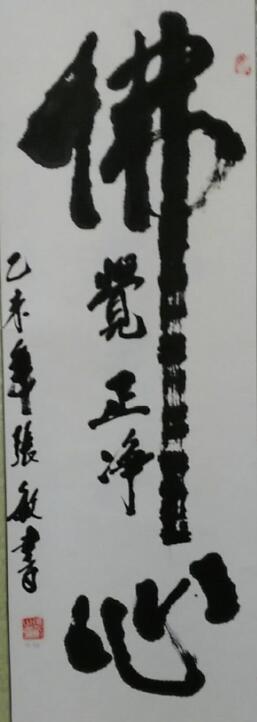 佛心
覺正净
乙未年張敏書